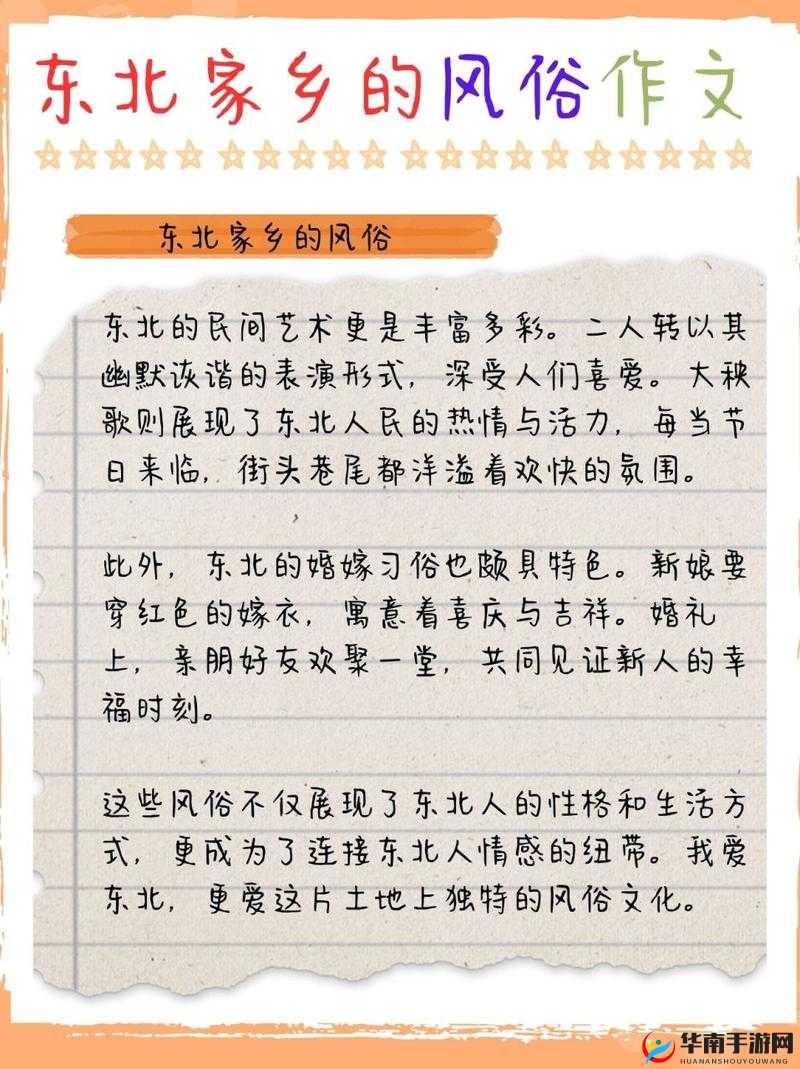 东北家乡的风俗作文
东北家乡的风俗
东北的民间艺术更是丰富多彩。二人转以其
幽默诙谐的表演形式，深受人们喜爱。大秧
歌则展现了东北人民的热情与活力，每当节
日来临，街头巷尾都洋溢着欢快的氛围。
此外，东北的婚嫁习俗也颇具特色。新娘要
穿红色的嫁衣，寓意着喜庆与吉祥。婚礼
上，亲朋好友欢聚一堂，共同见证新人的幸
福时刻。
这些风俗不仅展现了东北人的性格和生活方
式，更成为了连接东北人情感的纽带。我爱
东北，更爱这片土地上独特的风俗文化。
华南手游网
HUANANSHOUYOUWANG